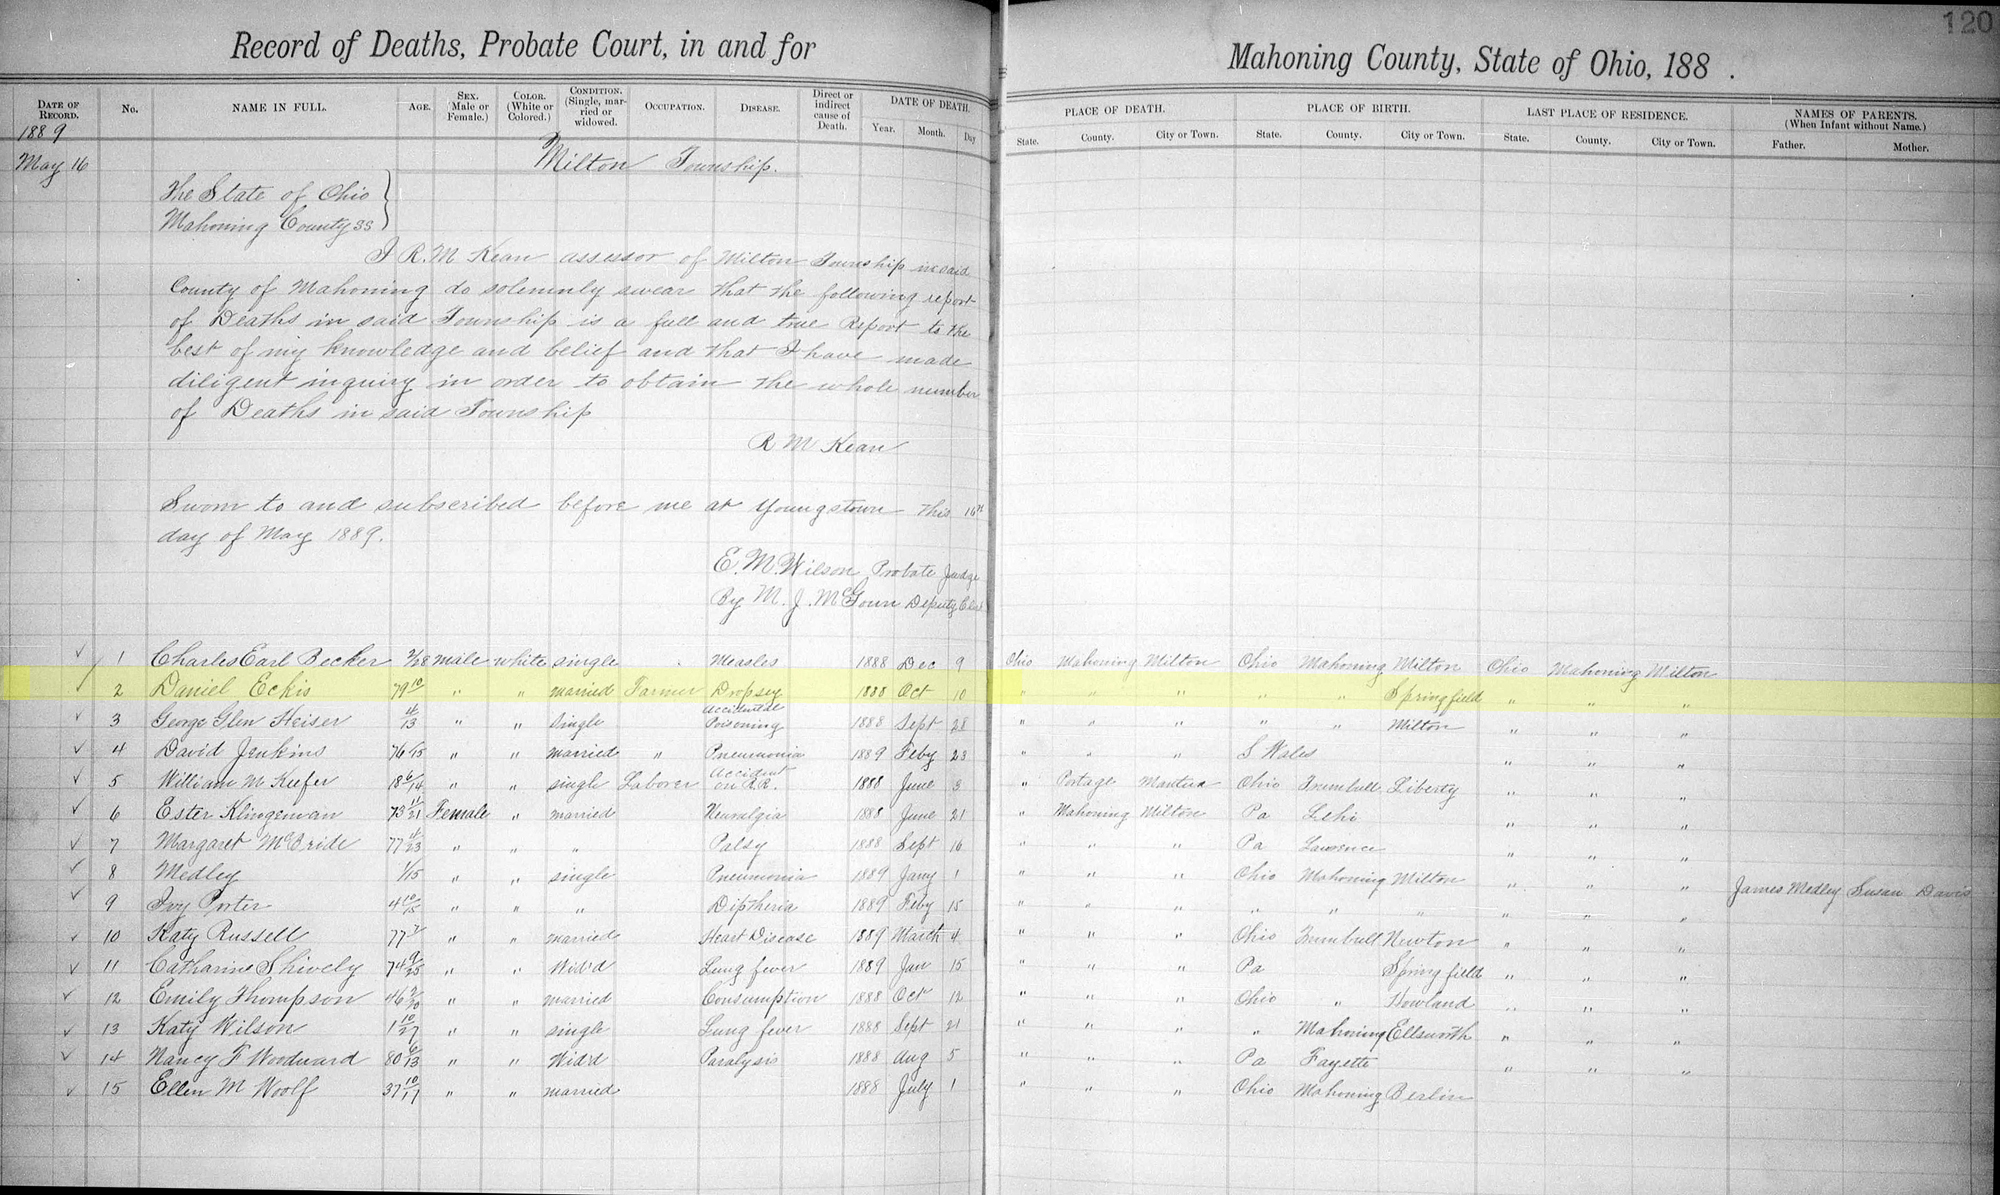 120
Record of Deaths, Probate Court, in and for Mahoning County, State of Ohio, 188 .
DATE OF RECORD. No. NAME IN FULL. AGE. SEX. (Male or Female.) COLOR. (White or Colored.) CONDITION. (Single, married or widowed.) OCCUPATION. DISEASE. Direct or indirect cause of Death. DATE OF DEATH. Year. Month. Day PLACE OF DEATH. State. County. City or Town. PLACE OF BIRTH. State. County. City or Town. LAST PLACE OF RESIDENCE. State. County. City or Town. NAMES OF PARENTS. (When Infant without Name.) Father. Mother.
1889
May 16 Milton Township.
The State of Ohio }
Mahoning County SS }
I R. M Kean assessor of Milton Township in said
County of Mahoning do solemnly swear that the following report
of Deaths in said Township is a full and true Report to the
best of my knowledge and belief and that I have made
diligent inquiry in order to obtain the whole number
of Deaths in said Township
R M Kean
Sworn to and subscribed before me at Youngstown this 16th
day of May 1889.
E. M. Wilson Probate Judge
By M. J. McGoun Deputy Clerk
✓ 1 Charles Earl Becker 2/28 male white single Measles 1888 Dec 9 Ohio Mahoning Milton Ohio Mahoning Milton Ohio Mahoning Milton
✓ 2 Daniel Eckis 79 10 " " married Farmer Dropsy 1888 Oct 10 " " " " " Springfield " " "
✓ 3 George Glen Heiser 4/13 " " single Accidental Poisoning 1888 Sept 28 " " " " " Milton " " "
✓ 4 David Jenkins 76 " " married " Pneumonia 1889 Feby 23 " " " S Wales " " "
✓ 5 William M Keefer 18 6/14 " " single Laborer Accident on R.R. 1888 June 3 " Portage Mantua Ohio Trumbull Liberty " " "
✓ 6 Ester Klingeman 73 11/21 Female " married Neuralgia 1888 June 21 " Mahoning Milton Pa Lehi " " "
✓ 7 Margaret McBride 77 " " " Palsy 1888 Sept 16 " " " Pa Lawrence " " "
✓ 8 Medley 1/15 " " single Pneumonia 1889 Jany 1 " " " Ohio Mahoning Milton " " " James Medley Susan Davis
✓ 9 Ivy Porter 4 10/15 " " " Diptheria 1889 Feby 15 " " " " " " " " "
✓ 10 Katy Russell 77 " " married Heart Disease 1889 March 4 " " " Ohio Trumbull Newton " " "
✓ 11 Catharine Shively 74 9/25 " " Wid'd Lung fever 1889 Jan 15 " " " Pa Springfield " " "
✓ 12 Emily Thompson 46 " " married Consumption 1888 Oct 12 " " " Ohio " Howland " " "
✓ 13 Katy Wilson 1 10/27 " " single Lung fever 1888 Sept 21 " " " " Mahoning Ellsworth " " "
✓ 14 Nancy F Woodward 80 6/13 " " Wid'd Paralysis 1888 Aug 5 " " " Pa Fayette " " "
✓ 15 Ellen M Woolf 37 10/17 " " married 1888 July 1 " " " Ohio Mahoning Berlin